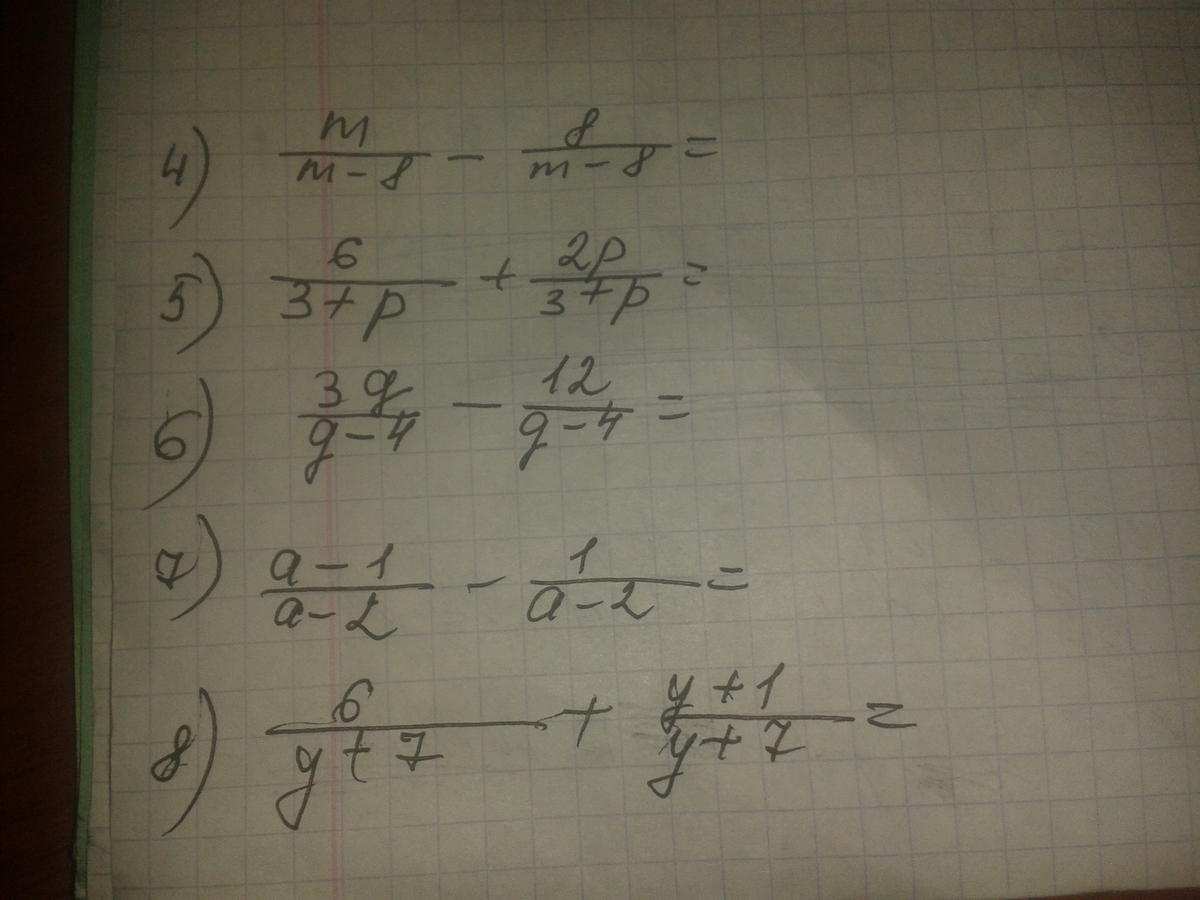 4) m/(m-8) - 8/(m-8) =
5) 6/(3+p) + 2p/(3+p) =
6) 3g/(g-4) - 12/(g-4) =
7) (a-1)/(a-2) - 1/(a-2) =
8) 6/(y+7) + (y+1)/(y+7) =